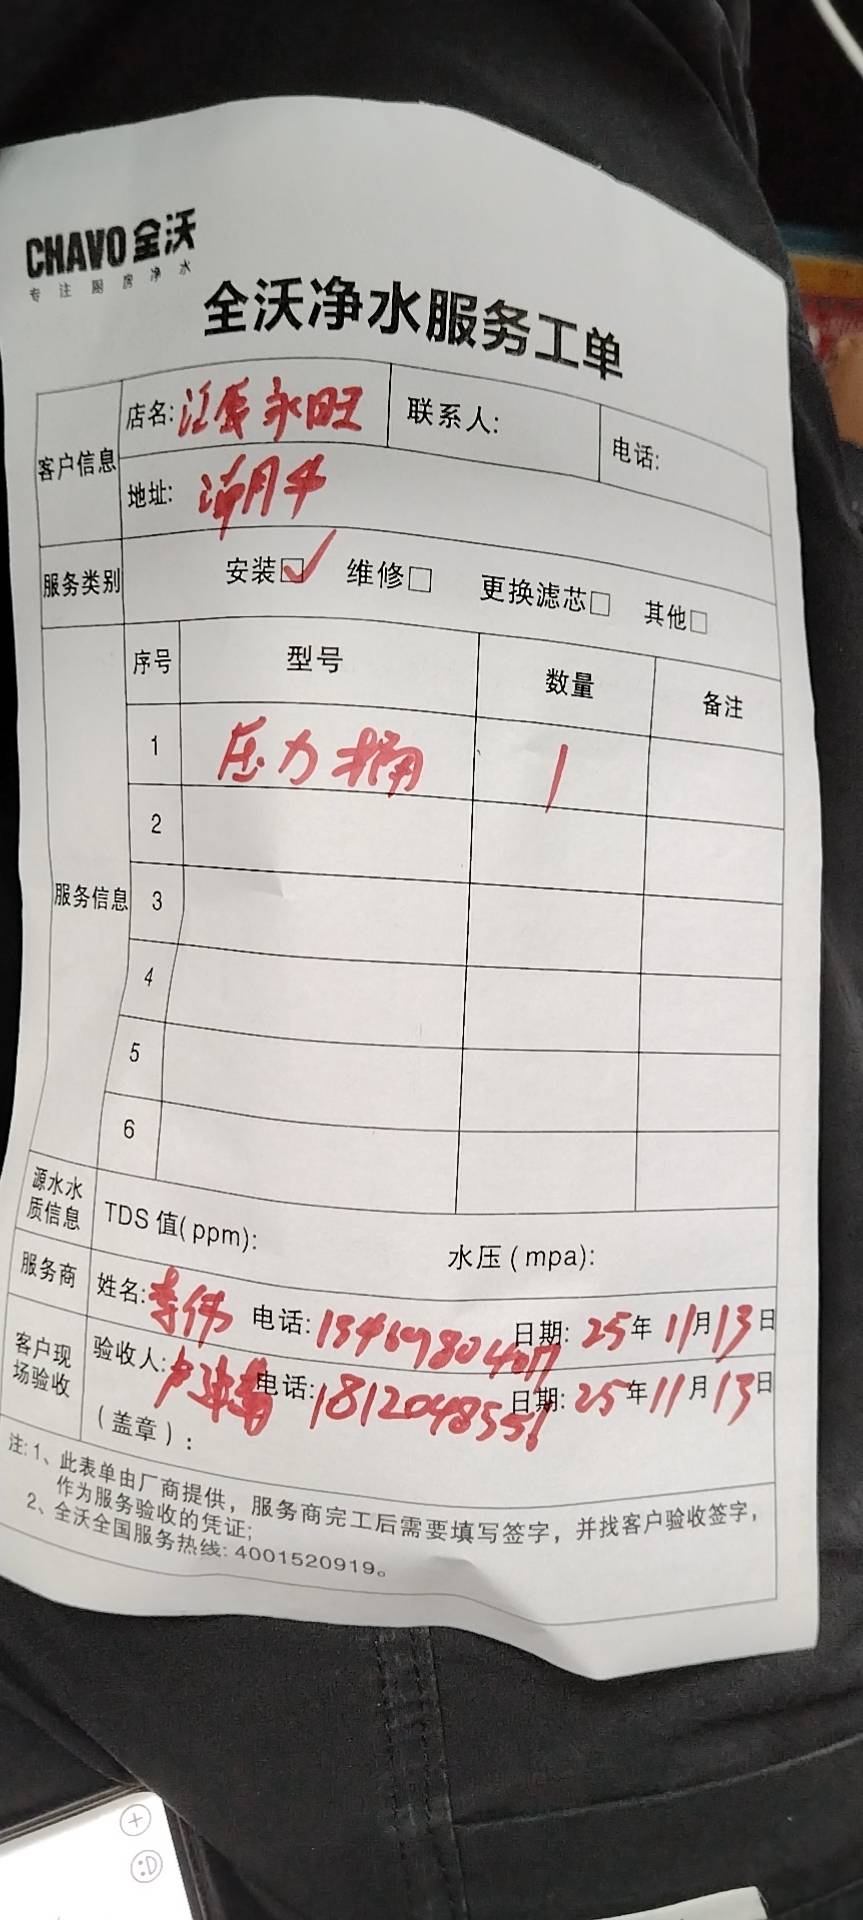 CHAVO 全沃
专注厨房净水
全沃净水服务工单
客户信息
店名: 江夏永旺
联系人:
电话:
地址:
服务类别
安装☑ 维修□ 更换滤芯□ 其他□
服务信息
序号 型号 数量 备注
1 压力桶 1
2
3
4
5
6
源水水质信息
TDS 值(ppm): 水压(mpa):
服务商
姓名: 李伟 电话: 日期: 25年11月13日
客户现场验收
验收人: 卢 电话: 18120485561 日期: 25年11月13日
(盖章):
注: 1、此表单由厂商提供，服务商完工后需要填写签字，并找客户验收签字，
作为服务验收的凭证;
2、全沃全国服务热线: 4001520919。